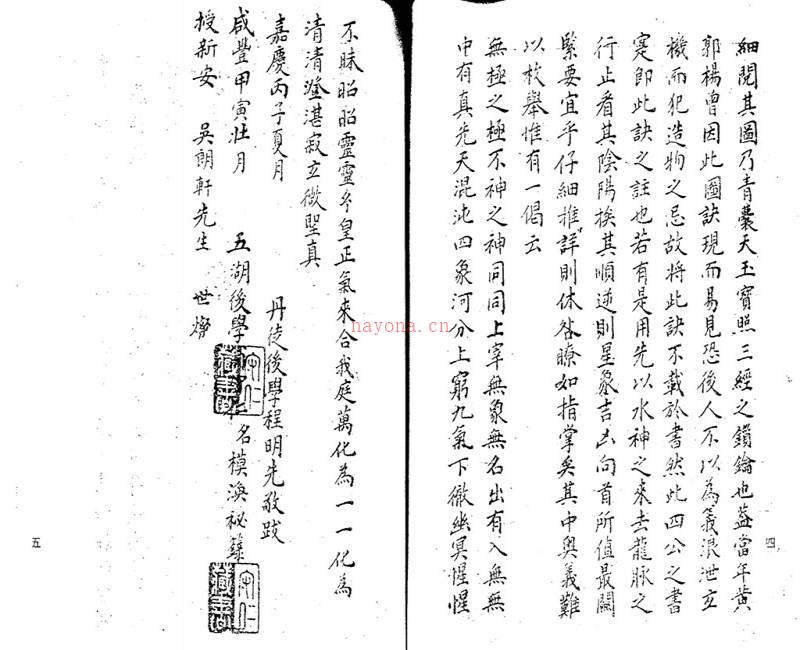 細閱其圖乃青囊天玉寶照三經之鎖鑰也蓋當年黃
郭楊曾因此圖訣現而易見恐後人不以為義泯泄玄
機而犯造物之忌故將此訣不載於書然此四公之書
寔即此訣之註也若有是用先以水神之來去龍脉之
行止看其陰陽挨其順逆則星象吉凶向首所值最關
緊要宜乎仔細推詳則休咎瞭如指掌矣其中奧義難
以枚舉惟有一偈云
無極之極不神之神同同上宰無象無名出有入無無
中有真先天混沌四象河分上窮九氣下徹幽冥惺惺
四
不昧昭昭靈靈兮皇正氣來合我庭萬化為一一化為
清清澄湛寂立徵聖真
嘉慶丙子夏月 丹徒後學程明先敬跋
咸豐甲寅壯月 五湖後學 名模渙祕錄
授新安 吳朗軒先生 世
五
hayona.cn